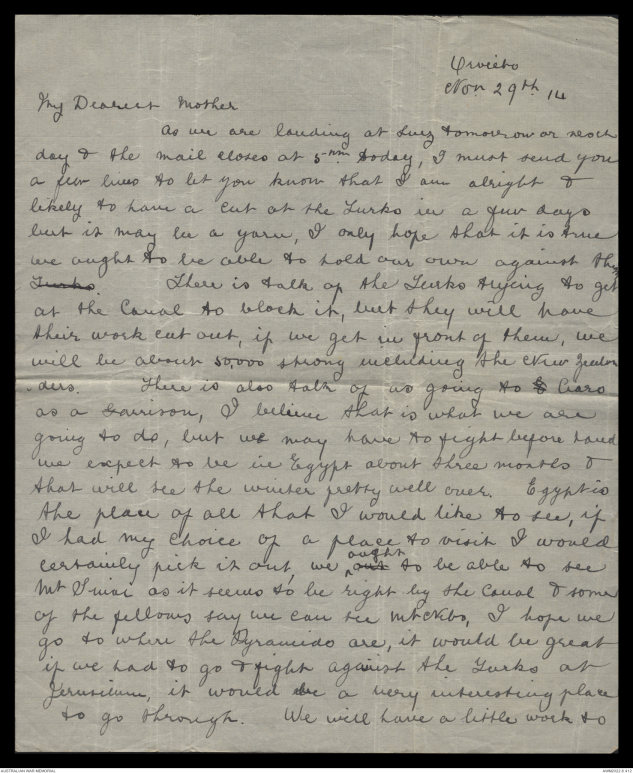 Orvieto
Nov 29th 14
My Dearest Mother
As we are landing at Suez tomorrow or next
day & the mail closes at 5 pm today, I must send you
a few lines to let you know that I am alright &
likely to have a cut at the Turks in a few days
but it may be a yarn, I only hope that it is true
we ought to be able to hold our own against the
Turks There is talk of the Turks trying to get
at the Canal to block it, but they will have
their work cut out, if we get in front of them, we
will be about 50,000 strong including the New Zealan
ders. There is also talk of us going to Ciaro
as a Garrison, I believe that is what we are
going to do, but we may have to fight before hand
we expect to be in Egypt about three months &
that will see the winter pretty well over. Egypt is
the place of all that I would like to see, if
I had my choice of a place to visit I would
certainly pick it out, we ought to be able to see
Mt Sinai as it seems to be right by the Canal & some
of the fellows say we can see Mt Nebo, I hope we
go to where the Pyramids are, it would be great
if we had to go & fight against the Turks at
Jerusilum, it would be a very interesting place
to go through. We will have a little work to
AUSTRALIAN WAR MEMORIAL